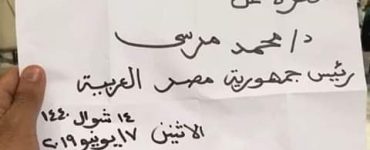 د/محمد مرسى
رئيس جمهورية مصر العربية
١٤ شوال ١٤٤٠
الاثنين ١٧ يونيو ٢٠١٩